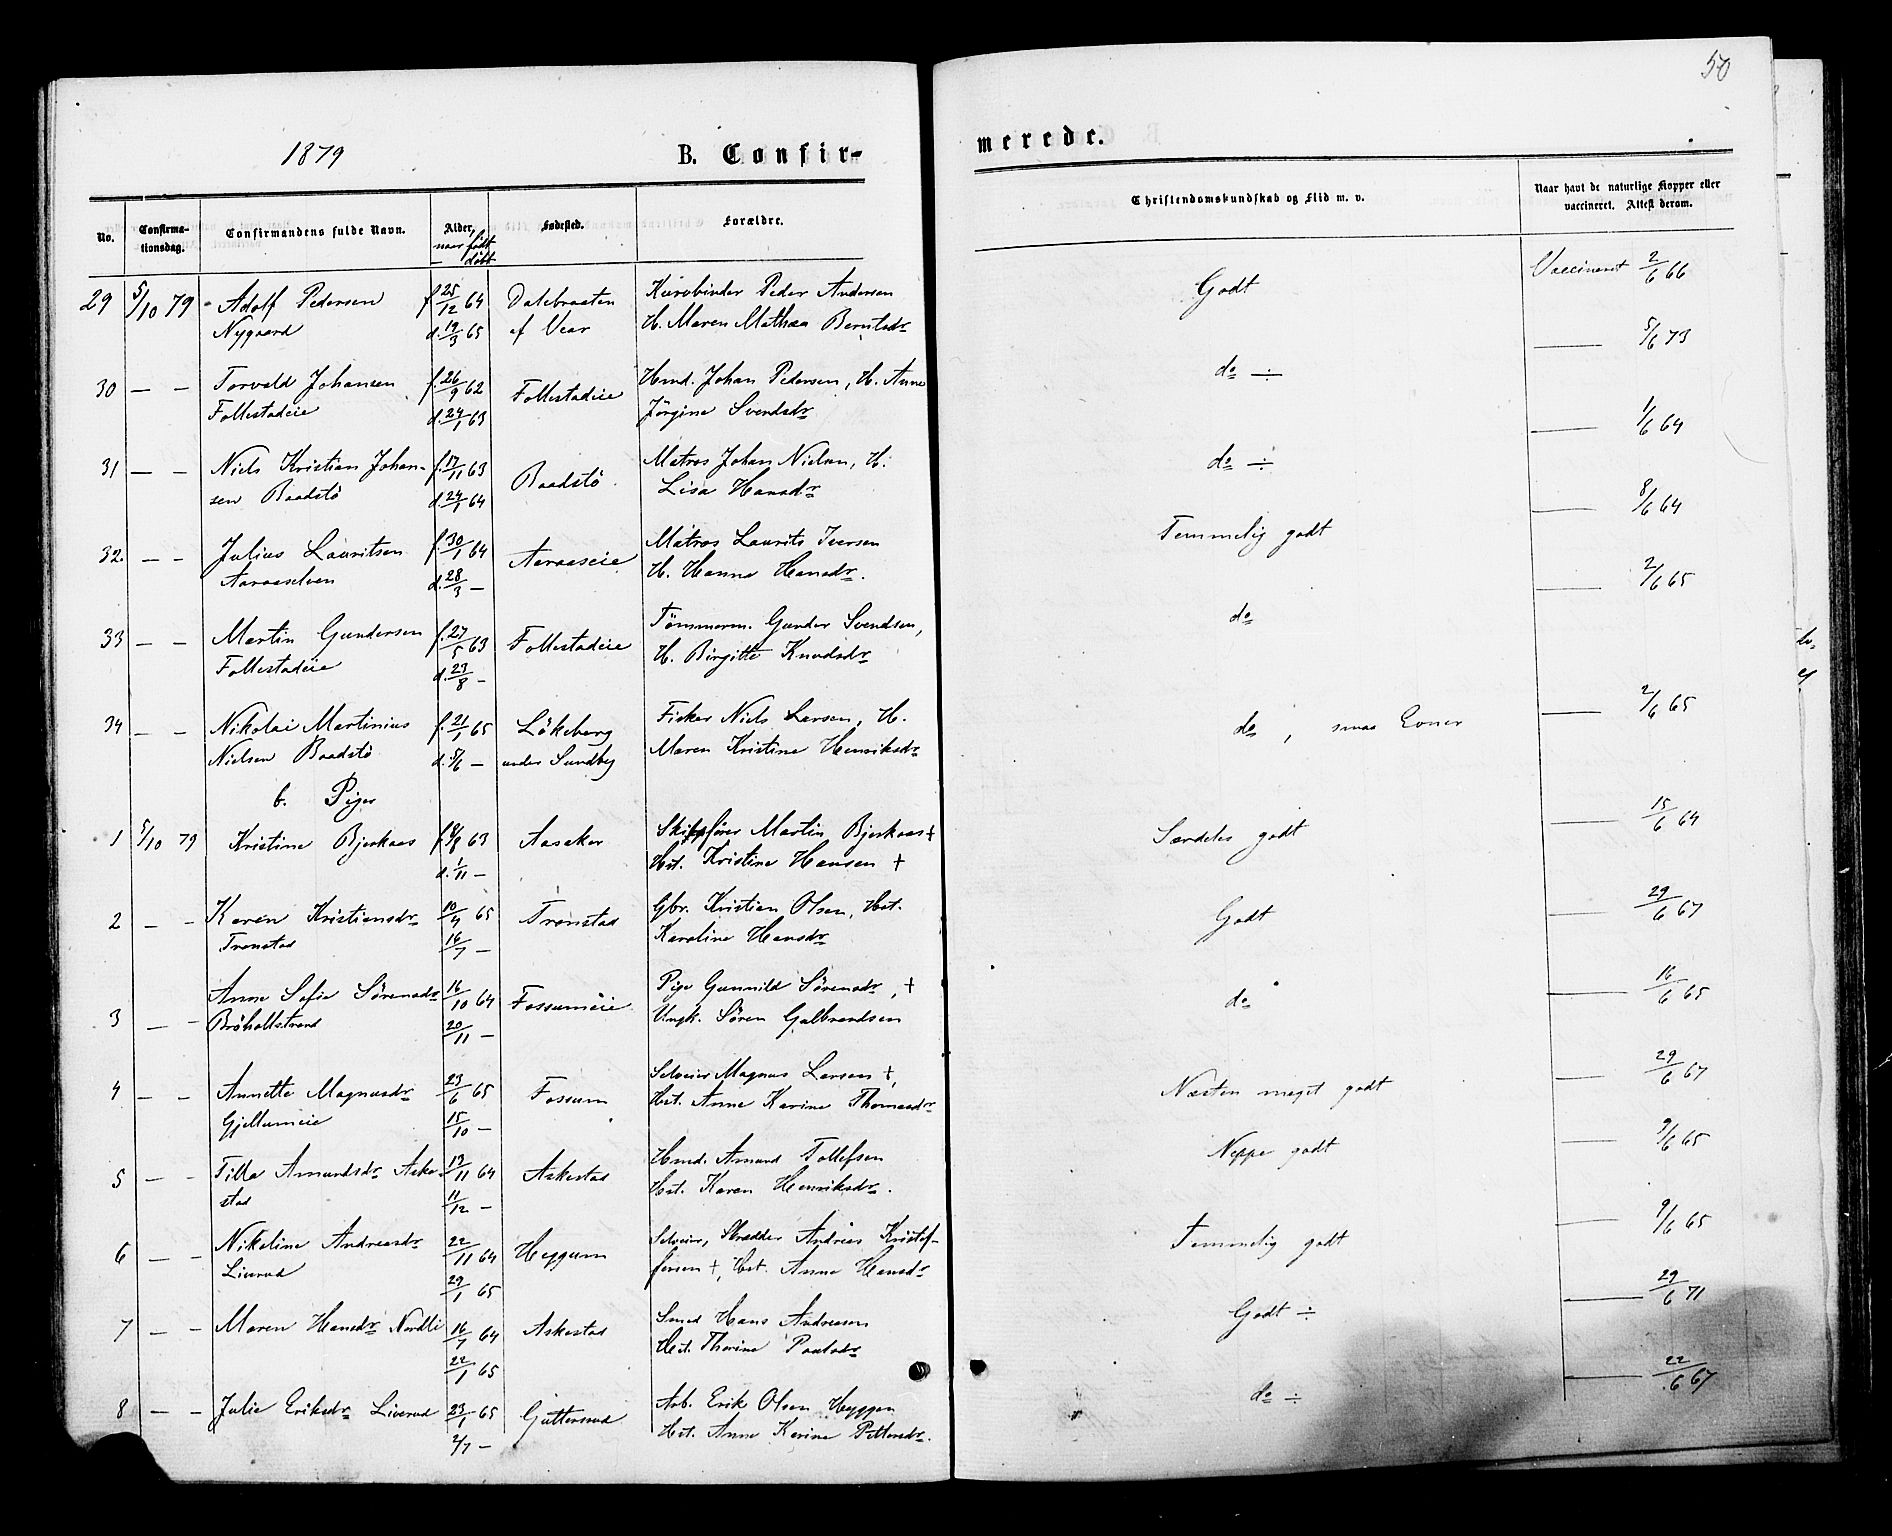 50
1879 B. Confir-
merede.
No. Confirma-tionsdag. Confirmandens fulde Navn. Alder, naar født døbt Fødested. Forældre. Christendomskundskab og Flid m. v. Naar havt de naturlige Kopper eller vaccineret. Attest derom.
29 5/10 79 Adolf Pedersen f. 25/12 64 Dalebraaten Peder Andersen Godt Vaccineret 2/6 66
Nygaard d. 19/3 65 af Vear H. Maren Mathea Berntsdr
30 — — Torvald Johansen f. 26/9 62 Follestadeie Hmd. Johan Pedersen, H. Anne do ÷ — 5/6 73
Follestadeie d. 24/1 63 Jörgine Svendsdr
31 — — Niels Kristian Johan- f. 17/11 63 Baadstö Matros Johan Nielsen, H. do ÷ — 1/6 64
sen Baadstö d. 24/1 64 Lisa Hansdr
32. — — Julius Lauritsen f. 30/1 64 Aaraaseie Matros Laurits Iversen Temmelig godt — 8/6 64
Aaraaselven d. 28/3 — H. Hanna Hansdr.
33 — — Martin Gundersen f. 27/5 63 Follestadeie Tömmerm. Gunder Svendsen, do — 2/6 65
Follestadeie d. 23/8 — H. Birgitte Knudsdr
34 — — Nikolai Martinius f. 21/1 65 Lökeberg Fisker Niels Larsen, H. do, smaa Evner — 2/6 65
Nielsen Baadstö d. 5/6 — under Sundby Maren Kristine Henriksdr
b. Piger
1 5/10 79 Kristine Bjerkaas f. 8/8 63 Aasaker Skipsförer Martin Bjerkaas + Særdeles godt — 15/6 64
d. 1/11 — Hst. Kristine Hansen +
2 — — Karen Kristiansdr 10/4 65 Tronstad Gbr. Kristian Olsen, Hst. Godt — 29/6 67
Tronstad 16/7 — Karoline Hansdr
3 — — Anne Sofie Sörensdr 16/10 64 Fossumeie Pige Gunnild Sörensdr, + do — 16/6 65
Bröholtstrand 20/11 — Ungk. Sören Gulbrandsen
4 — — Annette Magnusdr 23/6 65 Fossum Selveier Magnus Larsen +, Næsten meget godt — 29/6 67
Gjellumeie 15/10 — Hst. Anne Karine Thomasdr
5 — — Tilla Amundsdr Aske- 13/11 64 Askestad Hmd. Amund Tollefsen Neppe godt — 9/6 65
stad 11/12 — Hst. Karen Henriksdr.
6 — — Nikoline Andreasdr 22/11 64 Heggum Selveier, Skrædder Andreas Kristof- Temmelig godt — 9/6 65
Liverud 29/1 65 fersen +, Hst. Anne Hansdr
7 — — Maren Hansdr Nordli 16/7 64 Askestad Smed Hans Andreasen Godt ÷ — 29/6 71
22/1 65 Hst. Thorine Paulsdr
8 — — Julie Eriksdr Liverud 23/1 65 Guttersrud Arb. Erik Olsen Heggen do ÷ — 22/6 67
2/7 — Hst. Anne Karine Pettersdr.